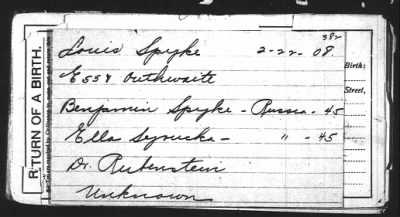 382
Louis Spyke 2-22-08.
E 55 & Outhwaite
Benjamin Spyke - Russia - 45
Ella - " - 45
Dr. Rubenstein
Unknown
RETURN OF A BIRTH.
Birth:
Street,